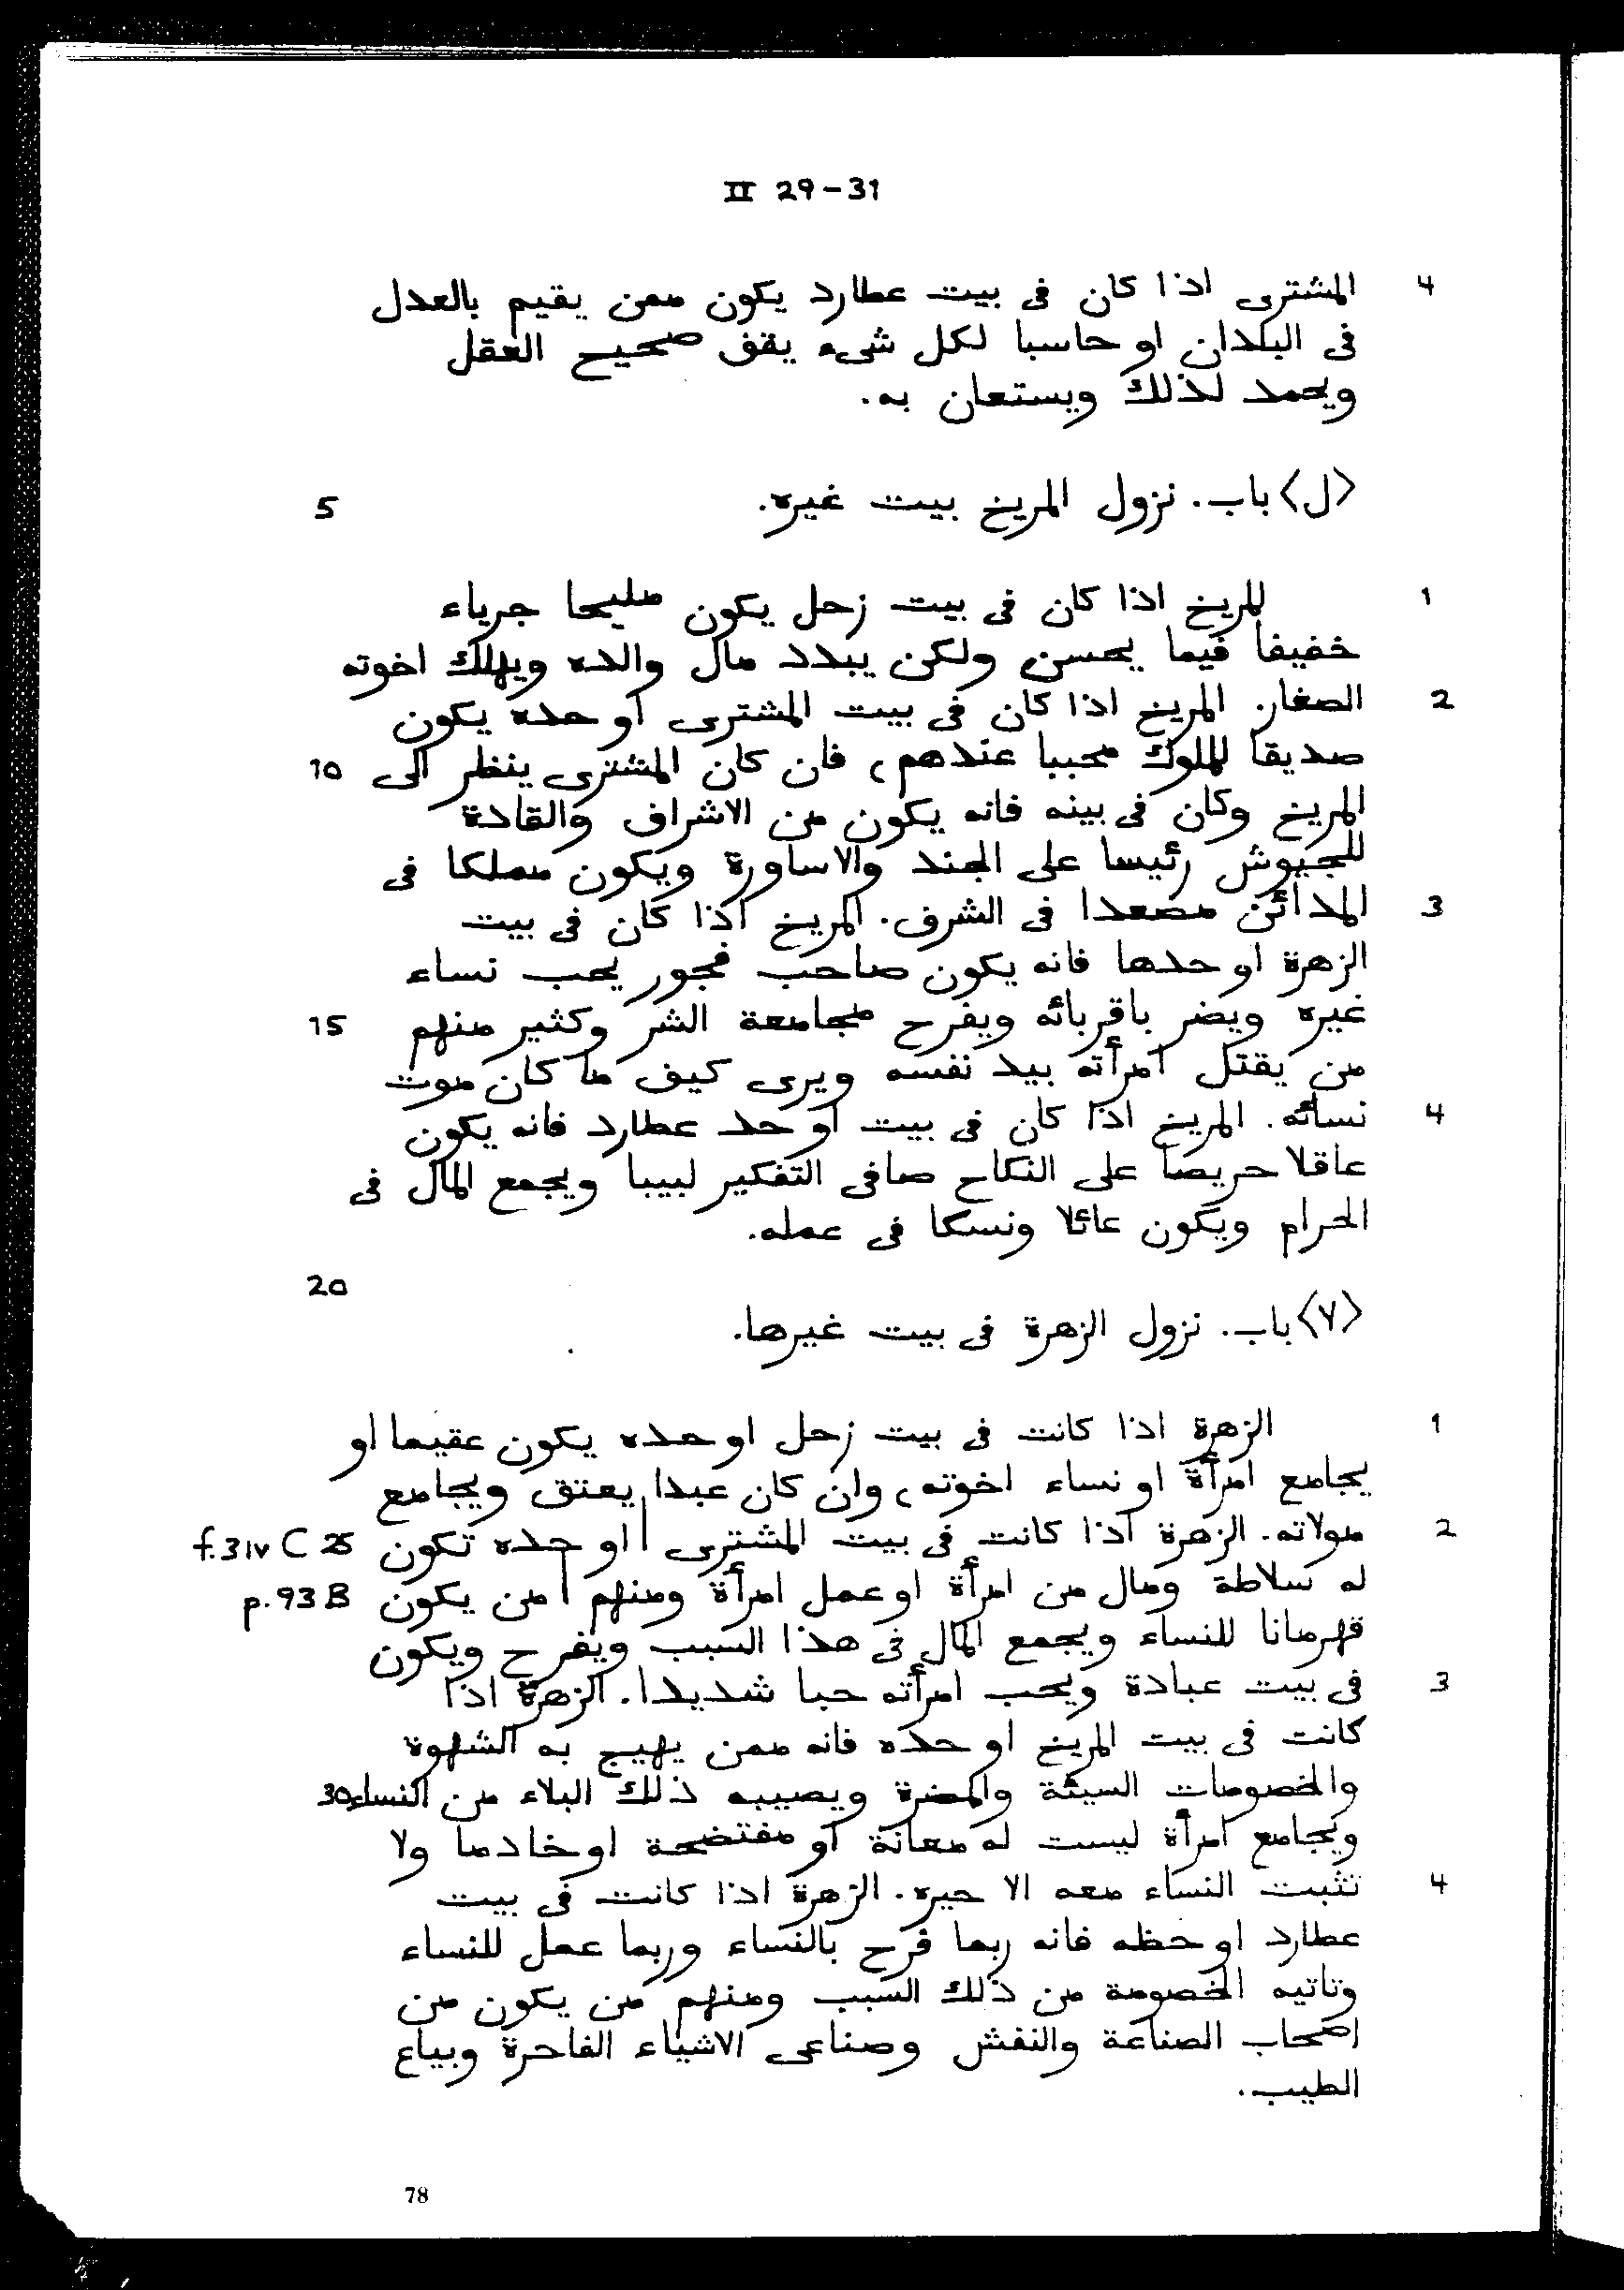 II 29-31
4 المشترى اذا كان فى بيت عطارد يكون ممن يقيم بالعدل
فى البلدان او حاسبا لكل شىء يقف صحيح العقل
ويحمد لذلك ويستعان به.
<ل> باب. نزول المريخ بيت غيره. 5
1 للمريخ اذا كان فى بيت زحل يكون مليحا جرياء
خفيفا فيما يحسن ولكن يبدد مال والده ويهلك اخوته
2 الصغار. المريخ اذا كان فى بيت المشترى او حده يكون
صديقا للملوك محببا عندهم، فان كان المشترى ينظر الى 10
المريخ وكان فى بينه فانه يكون من الاشراف والقادة
للجيوش رئيسا على الجند والاساورة ويكون مملكا فى
3 المدائن مصعدا فى الشرف. المريخ اذا كان فى بيت
الزهرة او حدها فانه يكون صاحب فجور يحب نساء
غيره ويضر باقربائه ويفرح مجامعة الشر وكثير منهم 15
من يقتل امرأته بيد نفسه ويرى كيف ما كان موت
4 نسائه. المريخ اذا كان فى بيت او حد عطارد فانه يكون
عاقلا حريصا على النكاح صافى التفكير لبيبا ويجمع المال فى
الحرام ويكون عائلا ونسكا فى عمله.
20
<لا> باب. نزول الزهرة فى بيت غيرها.
1 الزهرة اذا كانت فى بيت زحل او حده يكون عقيما او
يجامع امرأة او نساء اخوته، وان كان عبدا يعتق ويجامع
2 مولاته. الزهرة اذا كانت فى بيت المشترى | او حده تكون f.31v C 25
له سلاطة ومال من امرأة او عمل امرأة ومنهم | من يكون p.93 B
قهرمانا للنساء ويجمع المال فى هذا السبب ويفرح ويكون
3 فى بيت عبادة ويحب امرأته حبا شديدا. الزهرة اذا
كانت فى بيت المريخ او حده فانه ممن يهيج به الشهوة
والخصومات السيئة والمضرة ويصيبه ذلك البلاء من النساء 30
ويجامع امرأة ليست له معانة او مفتضحة او خادما ولا
4 تثبت النساء معه الا حيره. الزهرة اذا كانت فى بيت
عطارد او حظه فانه ربما فرح بالنساء وربما عمل للنساء
وتاتيه الخصومة من ذلك السبب ومنهم من يكون من
اصحاب الصناعة والنفش وصناعى الاشياء الفاحرة وبياع
الطيب.
78